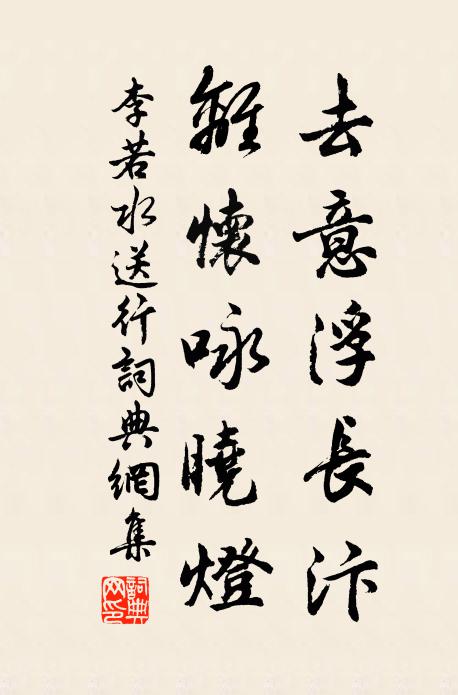 去意浮長汴
離懷咏曉燈
李若水送行詞典網集
詞典網印